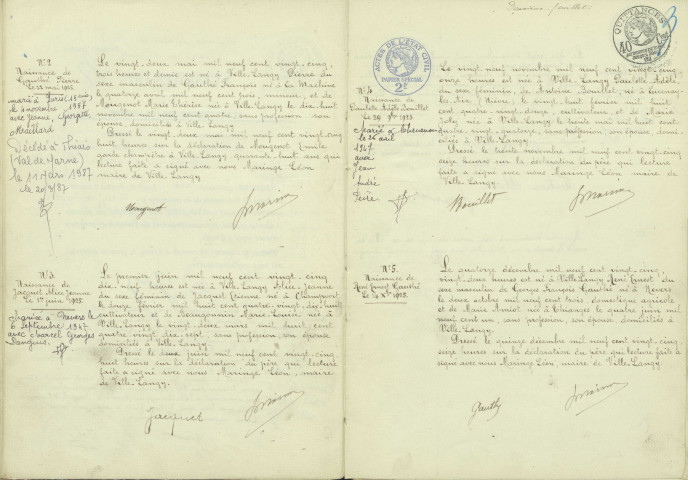 N° 2
Naissance de
Gautté Pierre
Le 22 mai 1925.
marié à Paris
le 4 novembre 1957
avec Jeanne, Georgette
Maillard
Décédé à Thiais
(Val de Marne)
le 11 Mars 1987
le 20/3/87
Le vingt deux mai mil neuf cent vingt-cinq
trois heures et demie est né à Ville-Langy Pierre du
sexe masculin de François né à La Machine
le quatorze avril mil neuf cent trois, et de
Mougenot Marie née à Ville-Langy le dix huit
novembre mil neuf cent quatre, sans profession son
épouse domiciliés à Ville-Langy.
Dressé le vingt deux mai mil neuf cent vingt cinq
huit heures sur la déclaration de Mougenot Emile
garde champêtre à Ville-Langy quarante huit ans qui
lecture faite a signé avec nous Maringe Léon
maire de Ville-Langy.
Mougenot
N° 3
Naissance de
Jacquet Alice Jeanne
Le 1er juin 1925.
Mariée à Nevers le
6 septembre 1947
avec Marcel Georges
Le premier juin mil neuf cent vingt-cinq
dix-neuf heures est née à Ville-Langy Alice, Jeanne
du sexe féminin de Jacquet Etienne né à Champvert
le douze février mil neuf cent vingt-dix-huit
cultivateur et de Marie-Louise née à
Ville-Langy le vingt-deux mars mil huit cent
quatre vingt dix sept, sans profession, son épouse,
domiciliés à Ville-Langy.
Dressé le deux juin mil neuf cent vingt-cinq
huit heures sur la déclaration du père qui lecture
faite a signé avec nous Maringe Léon, maire
de Ville-Langy.
Jacquet
Deuxième feuillet.
ACTES DE L'ETAT CIVIL
PAPIER SPECIAL
2F
QUITTANCES
40
N° 4
Naissance de
Paulette Adèle Bouillet
Le 29 9bre 1925
Mariée à
le 26 avril
1947
avec
Jean
André
Le vingt neuf novembre mil neuf cent vingt cinq
onze heures est née à Ville-Langy Paulette Adèle
du sexe féminin, de Antoine Bouillet, né à Lucenay-
les-Aix, Nièvre, le vingt huit février mil huit
cent quatre vingt douze, cultivateur, et de Marie
née à Ville-Langy le mil huit cent
quatre vingt quatorze, sans profession, son épouse domi-
ciliés à Ville-Langy.
Dressé le trente novembre mil neuf cent vingt cinq
seize heures sur la déclaration du père qui lecture
faite a signé avec nous Maringe Léon maire de
Ville-Langy.
Bouillet
N° 5.
Naissance de
René Ernest
Le 14 Xbre 1925.
Le quatorze décembre mil neuf cent vingt cinq,
deux heures est né à Ville-Langy René Ernest du
sexe masculin de Georges François né à Nevers
le deux octobre mil neuf cent trois domestique agricole
et de Marie née à Thianges le quatre juin mil
neuf cent un, sans profession, son épouse, domiciliés à
Ville-Langy.
Dressé le quinze décembre mil neuf cent vingt cinq
seize heures sur la déclaration du père qui lecture faite a
signé avec nous Maringe Léon, maire de Ville-Langy.